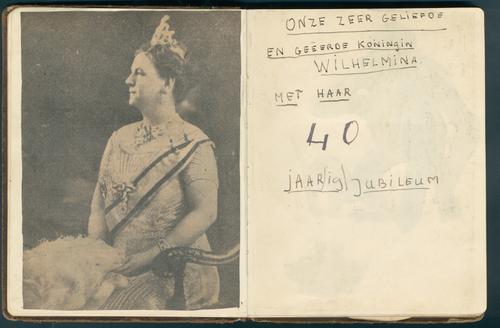 ONZE ZEER GELIEFDE
EN GEËERDE KONINGIN
WILHELMINA
MET HAAR
40
JAAR|ig| JUBILEUM